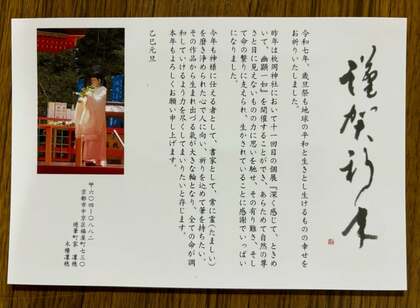 謹賀新年
令和七年、歳旦祭も地球の平和と生きとし生けるものの幸せを
お祈りいたしました。
昨年は枚岡神社において十一回目の個展『深く感じて、ときめ
いて、幽顕一如』を開催することができ、あらためて自然の尊
さと目に見えないものの力に思いを馳せ、その有り難さ、そし
て命の繋りに支えられ、生かされていることに感謝でいっぱい
になりました。
今年も神様に仕える者として、書家として、常に霊(たましい)
を磨き浄められた心で人に向い、祈りを込めて筆を持ちたい。
その作品から生まれ出づる気が大きな輪となり、全ての命が調
和していけるよう力を尽くしてまいりたいと存じます。
本年もよろしくお願い申し上げます。
乙巳元旦
〒六〇四-八八二
京都市中京区